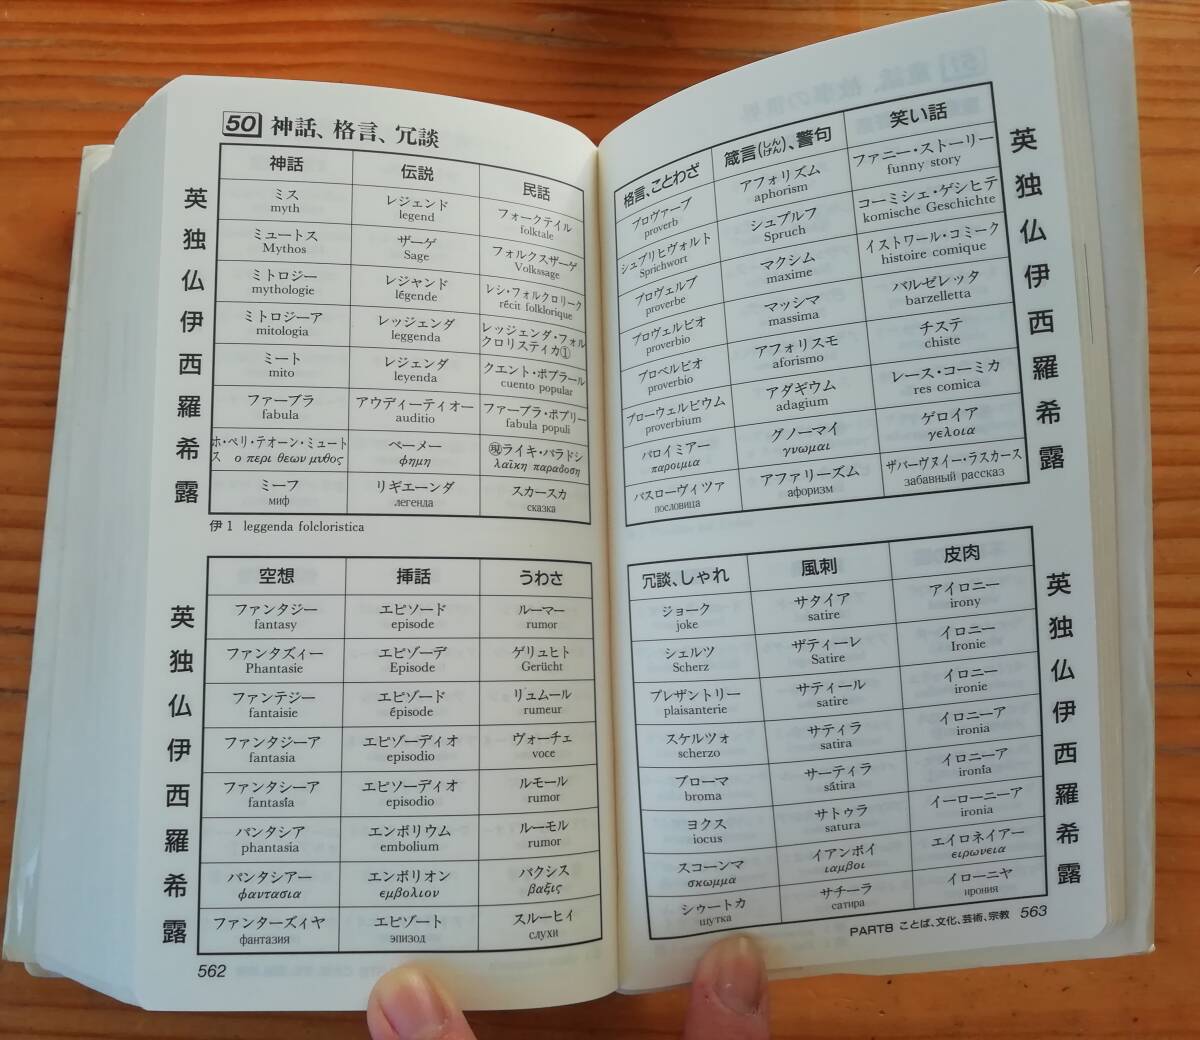 50 神話、格言、冗談
神話 伝説 民話
英 ミス レジェンド フォークテイル
myth legend folktale
独 ミュートス ザーゲ フォルクスザーゲ
Mythos Sage Volkssage
仏 ミトロジー レジャンド レシ・フォルクロリーク
mythologie légende récit folklorique
伊 ミトロジーア レッジェンダ レッジェンダ・フォル
クロリスティカ①
mitologia leggenda
西 ミート レジェンダ クエント・ポプラール
mito leyenda cuento popular
羅 ファーブラ アウディーティオー ファーブラ・ポプリー
fabula auditio fabula populi
希 ホ・ペリ・テオーン・ミュート ペーメー 現ライキ・パラドシ
ス ο περι θεων μυθος φημη λαϊκη παραδοση
露 ミーフ リギエーンダ スカースカ
миф легенда сказка
伊1 leggenda folcloristica
空想 挿話 うわさ
英 ファンタジー エピソード ルーマー
fantasy episode rumor
独 ファンタズィー エピゾーデ ゲリュヒト
Phantasie Episode Gerücht
仏 ファンテジー エピゾード リュムール
fantaisie épisode rumeur
伊 ファンタジーア エピゾーディオ ヴォーチェ
fantasia episodio voce
西 ファンタシーア エピソーディオ ルモール
fantasía episodio rumor
羅 パンタシア エンボリウム ルーモル
phantasia embolium rumor
希 パンタシアー エンボリオン バクシス
φαντασια εμβολιον βαξις
露 ファンターズィヤ エピゾート スルーヒィ
фантазия эпизод слухи
562
格言、ことわざ 箴言(しんげん)、警句 笑い話
英 プロヴァーブ アフォリズム ファニー・ストーリー
proverb aphorism funny story
独 シュプリヒヴォルト シュプルフ コーミシェ・ゲシヒテ
Sprichwort Spruch komische Geschichte
仏 プロヴェルブ マクシム イストワール・コミーク
proverbe maxime histoire comique
伊 プロヴェルビオ マッシマ バルゼレッタ
proverbio massima barzelletta
西 プロベルビオ アフォリスモ チステ
proverbio aforismo chiste
羅 プローウェルビウム アダギウム レース・コーミカ
proverbium adagium res comica
希 パロイミアー グノーマイ ゲロイア
παροιμια γνωμαι γελοια
露 パスローヴィツァ アファリーズム ザバーヴヌイー・ラスカース
пословица афоризм забавный рассказ
冗談、しゃれ 風刺 皮肉
英 ジョーク サタイア アイロニー
joke satire irony
独 シェルツ ザティーレ イロニー
Scherz Satire Ironie
仏 プレザントリー サティール イロニー
plaisanterie satire ironie
伊 スケルツォ サティラ イロニーア
scherzo satira ironia
西 ブローマ サーティラ イロニーア
broma sátira ironía
羅 ヨクス サトゥラ イーローニーア
iocus satura ironia
希 スコーンマ イアンボイ エイロネイアー
σκωμμα ιαμβοι ειρωνεια
露 シゥートカ サチーラ イローニヤ
шутка сатира ирония
PART8 ことば、文化、芸術、宗教 563